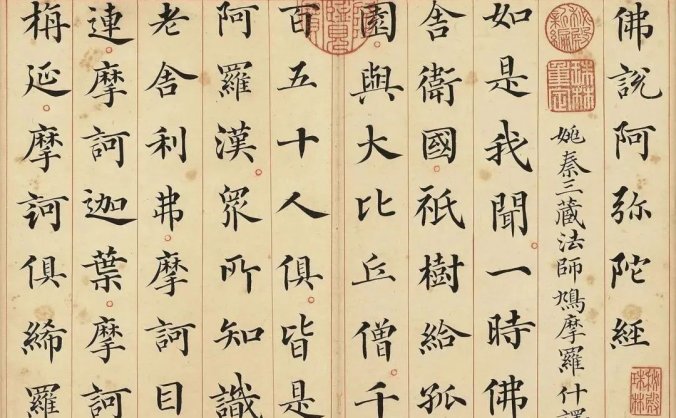 佛說阿弥陀經
姚秦三藏法師鳩摩羅什譯
如是我聞。一時佛
舍衛國。祇樹給孤
園。與大比丘僧千
百五十人俱。皆是
阿羅漢。眾所知識
老舍利弗。摩訶目
連。摩訶迦葉。摩訶
栴延。摩訶俱絺羅